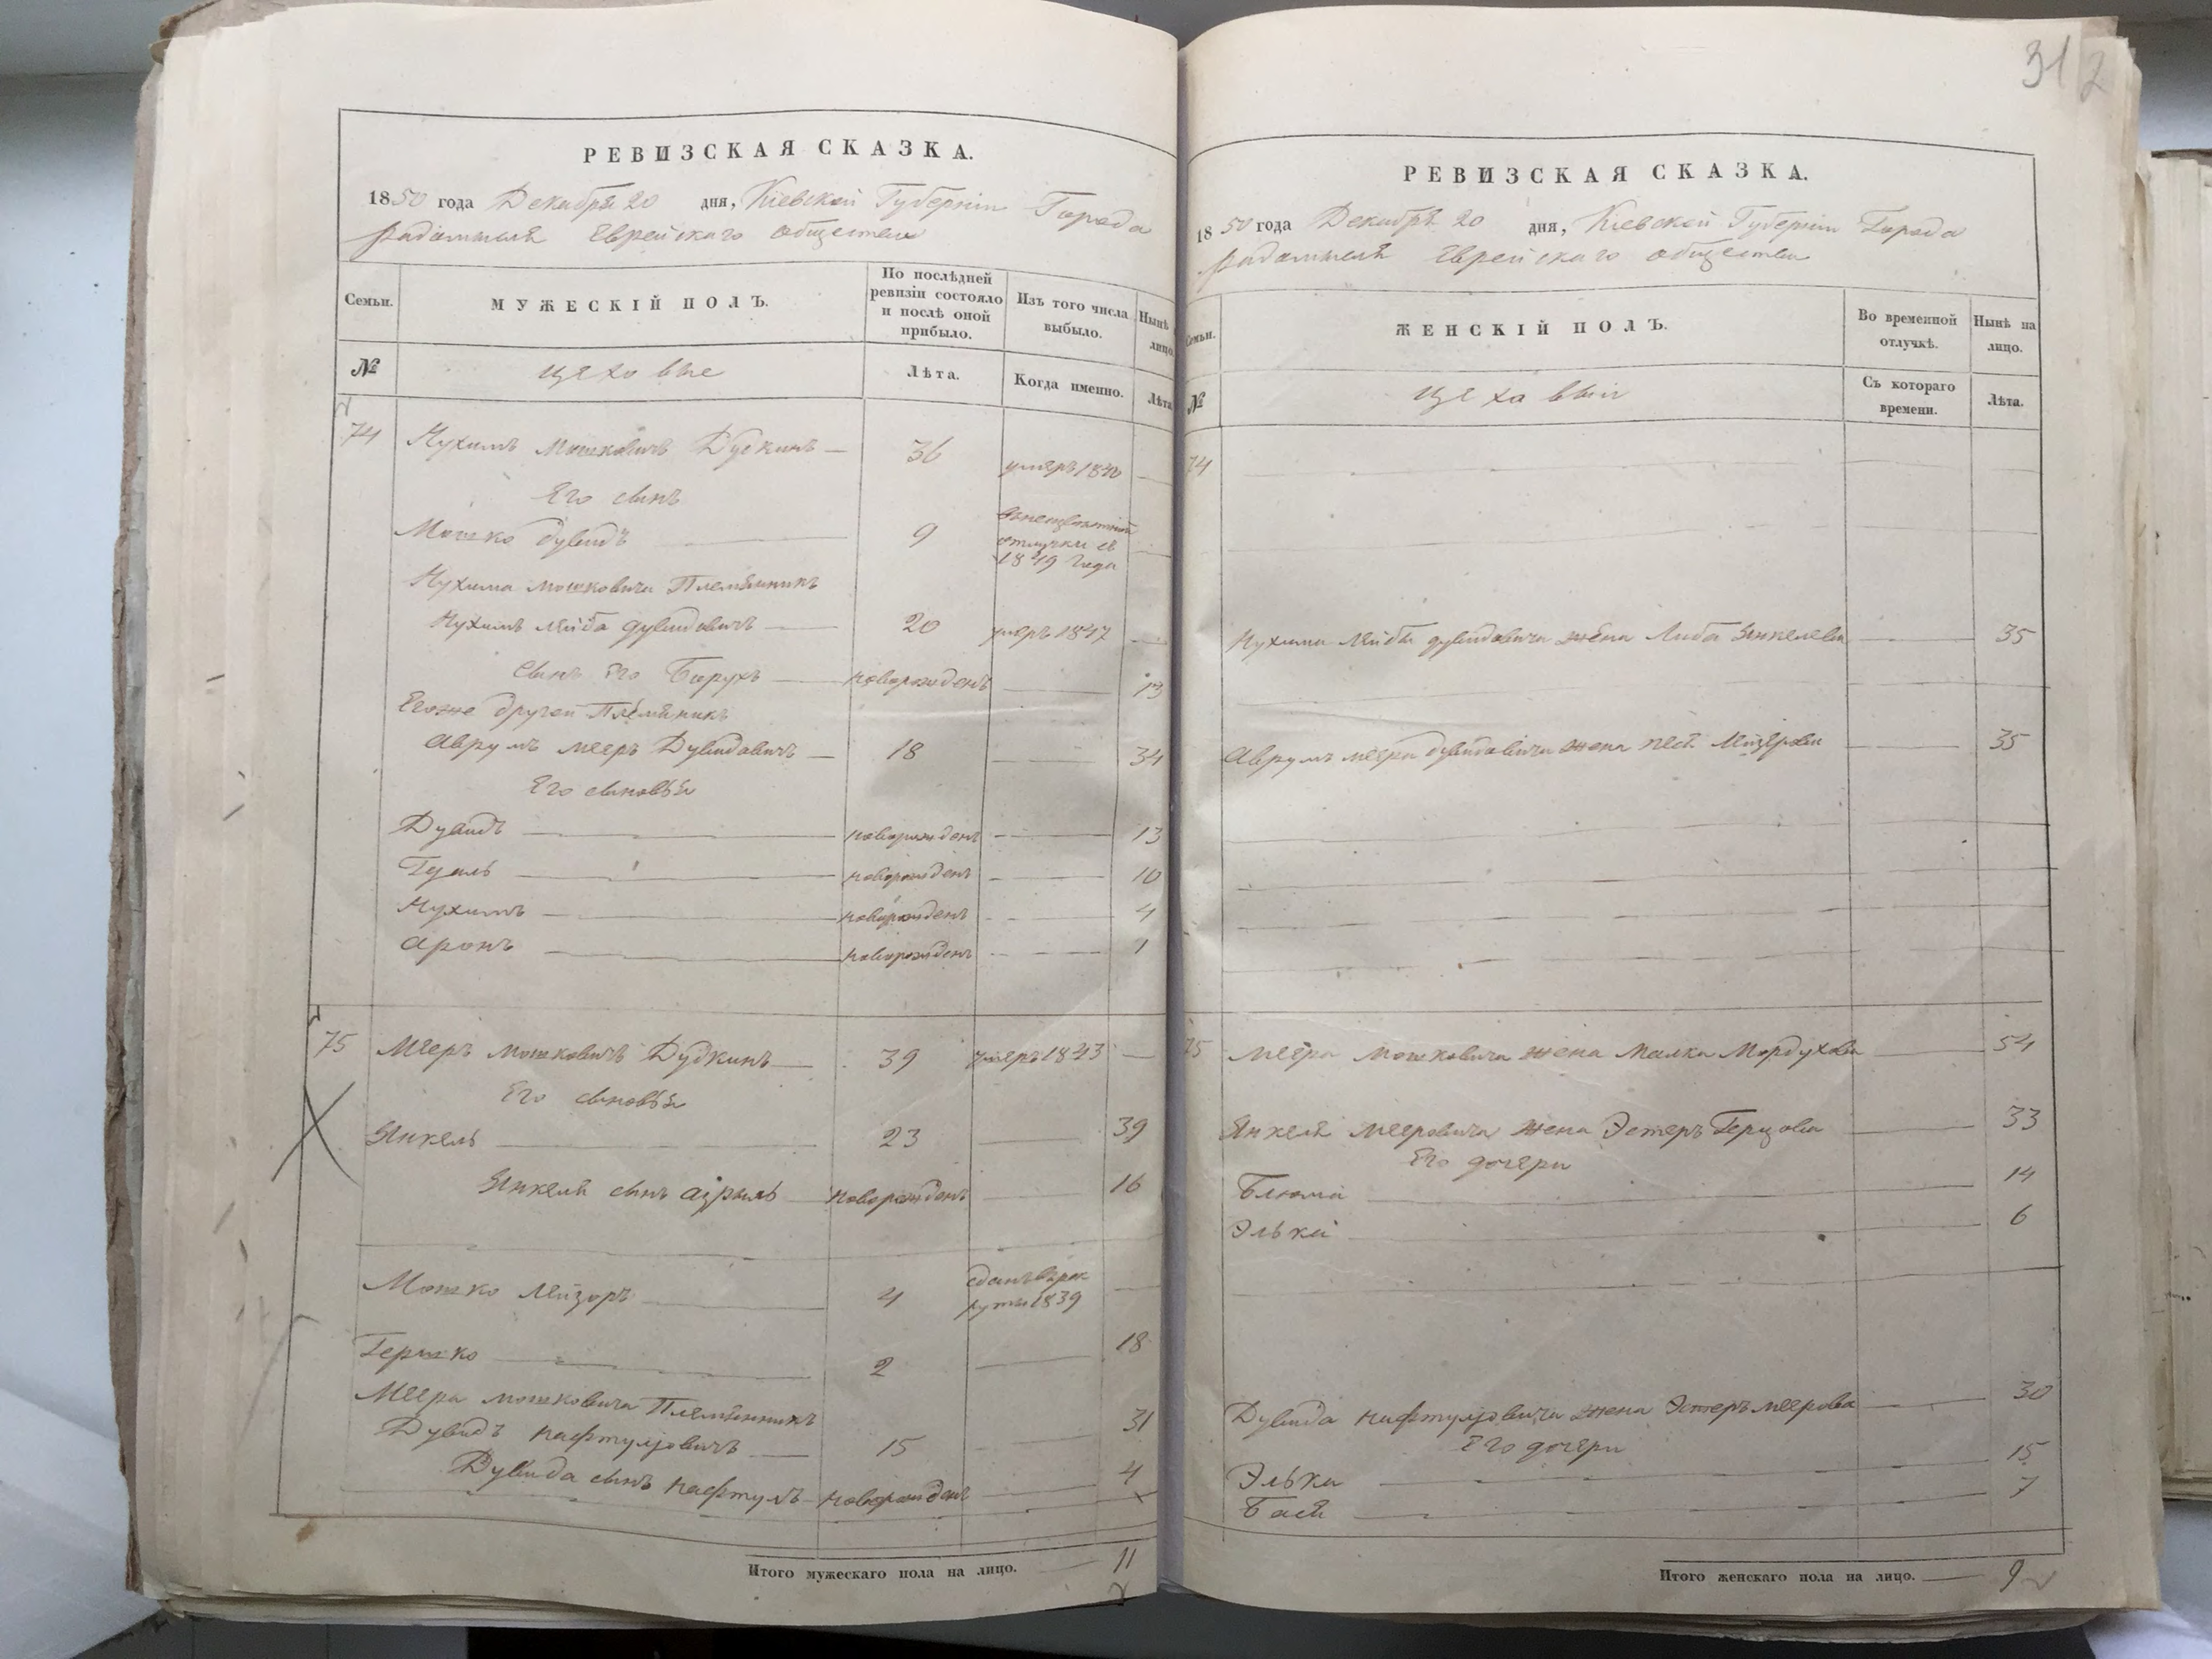 312
РЕВИЗСКАЯ СКАЗКА.
1850 года Декабря 20 дня, Кіевской Губерніи Города
Радомысля Еврейскаго общества
Семьи.
МУЖЕСКІЙ ПОЛЪ.
По послѣдней ревизіи состояло и послѣ оной прибыло.
Изъ того числа выбыло.
Нынѣ лицо.
№
цеховые
Лѣта.
Когда именно.
Лѣта
74 Нухимъ Мошковичъ Дудкинъ 36 умеръ 1840
Его сынъ
Мошко Дувидъ 9 отлучки съ 1849 года
Нухима Мошковича Племянникъ
Нухимъ Лейба Дувидовичъ 20 умеръ 1847
Сынъ его Борухъ новорожденъ 13
Егоже другой Племяникъ
Аврумъ Мееръ Дувидовичъ 18 34
Его сыновья
Дувидъ новорожденъ 13
Гдаль новорожденъ 10
Нухимъ новорожденъ 4
Аронъ новорожденъ 1
75 Мееръ Мошковичъ Дудкинъ 39 умеръ 1843
Его сыновья
Янкель 23 39
Янкеля сынъ Азрыль новорожденъ 16
Мошко Лейзоръ 4 сданъ в рекруты 1839
Гершко 2 18
Меера Мошковича Племянникъ
Дувидъ Нафтуловичъ 15 31
Дувида сынъ Нафтулъ новорожденъ 4
Итого мужескаго пола на лицо. 11
РЕВИЗСКАЯ СКАЗКА.
1850 года Декабря 20 дня, Кіевской Губерніи Города
Радомысля Еврейскаго общества
Семьи.
ЖЕНСКІЙ ПОЛЪ.
Во временной отлучкѣ.
Нынѣ на лицо.
№
цеховыи
Съ котораго времени.
Лѣта.
74
Нухима Лейбы Дувидовича жена Либа Янкелева 35
Аврумъ Меера Дувидовича жена Песя Лейзерова 35
75 Меера Мошковича жена Малка Мордухова 54
Янкеля Мееровича жена Эстеръ Герцова 33
Его дочери
Блюма 14
Элька 6
Дувида Нафтуловича жена Эстеръ Меерова 30
Его дочери
Элька 15
Бася 7
Итого женскаго пола на лицо. 9